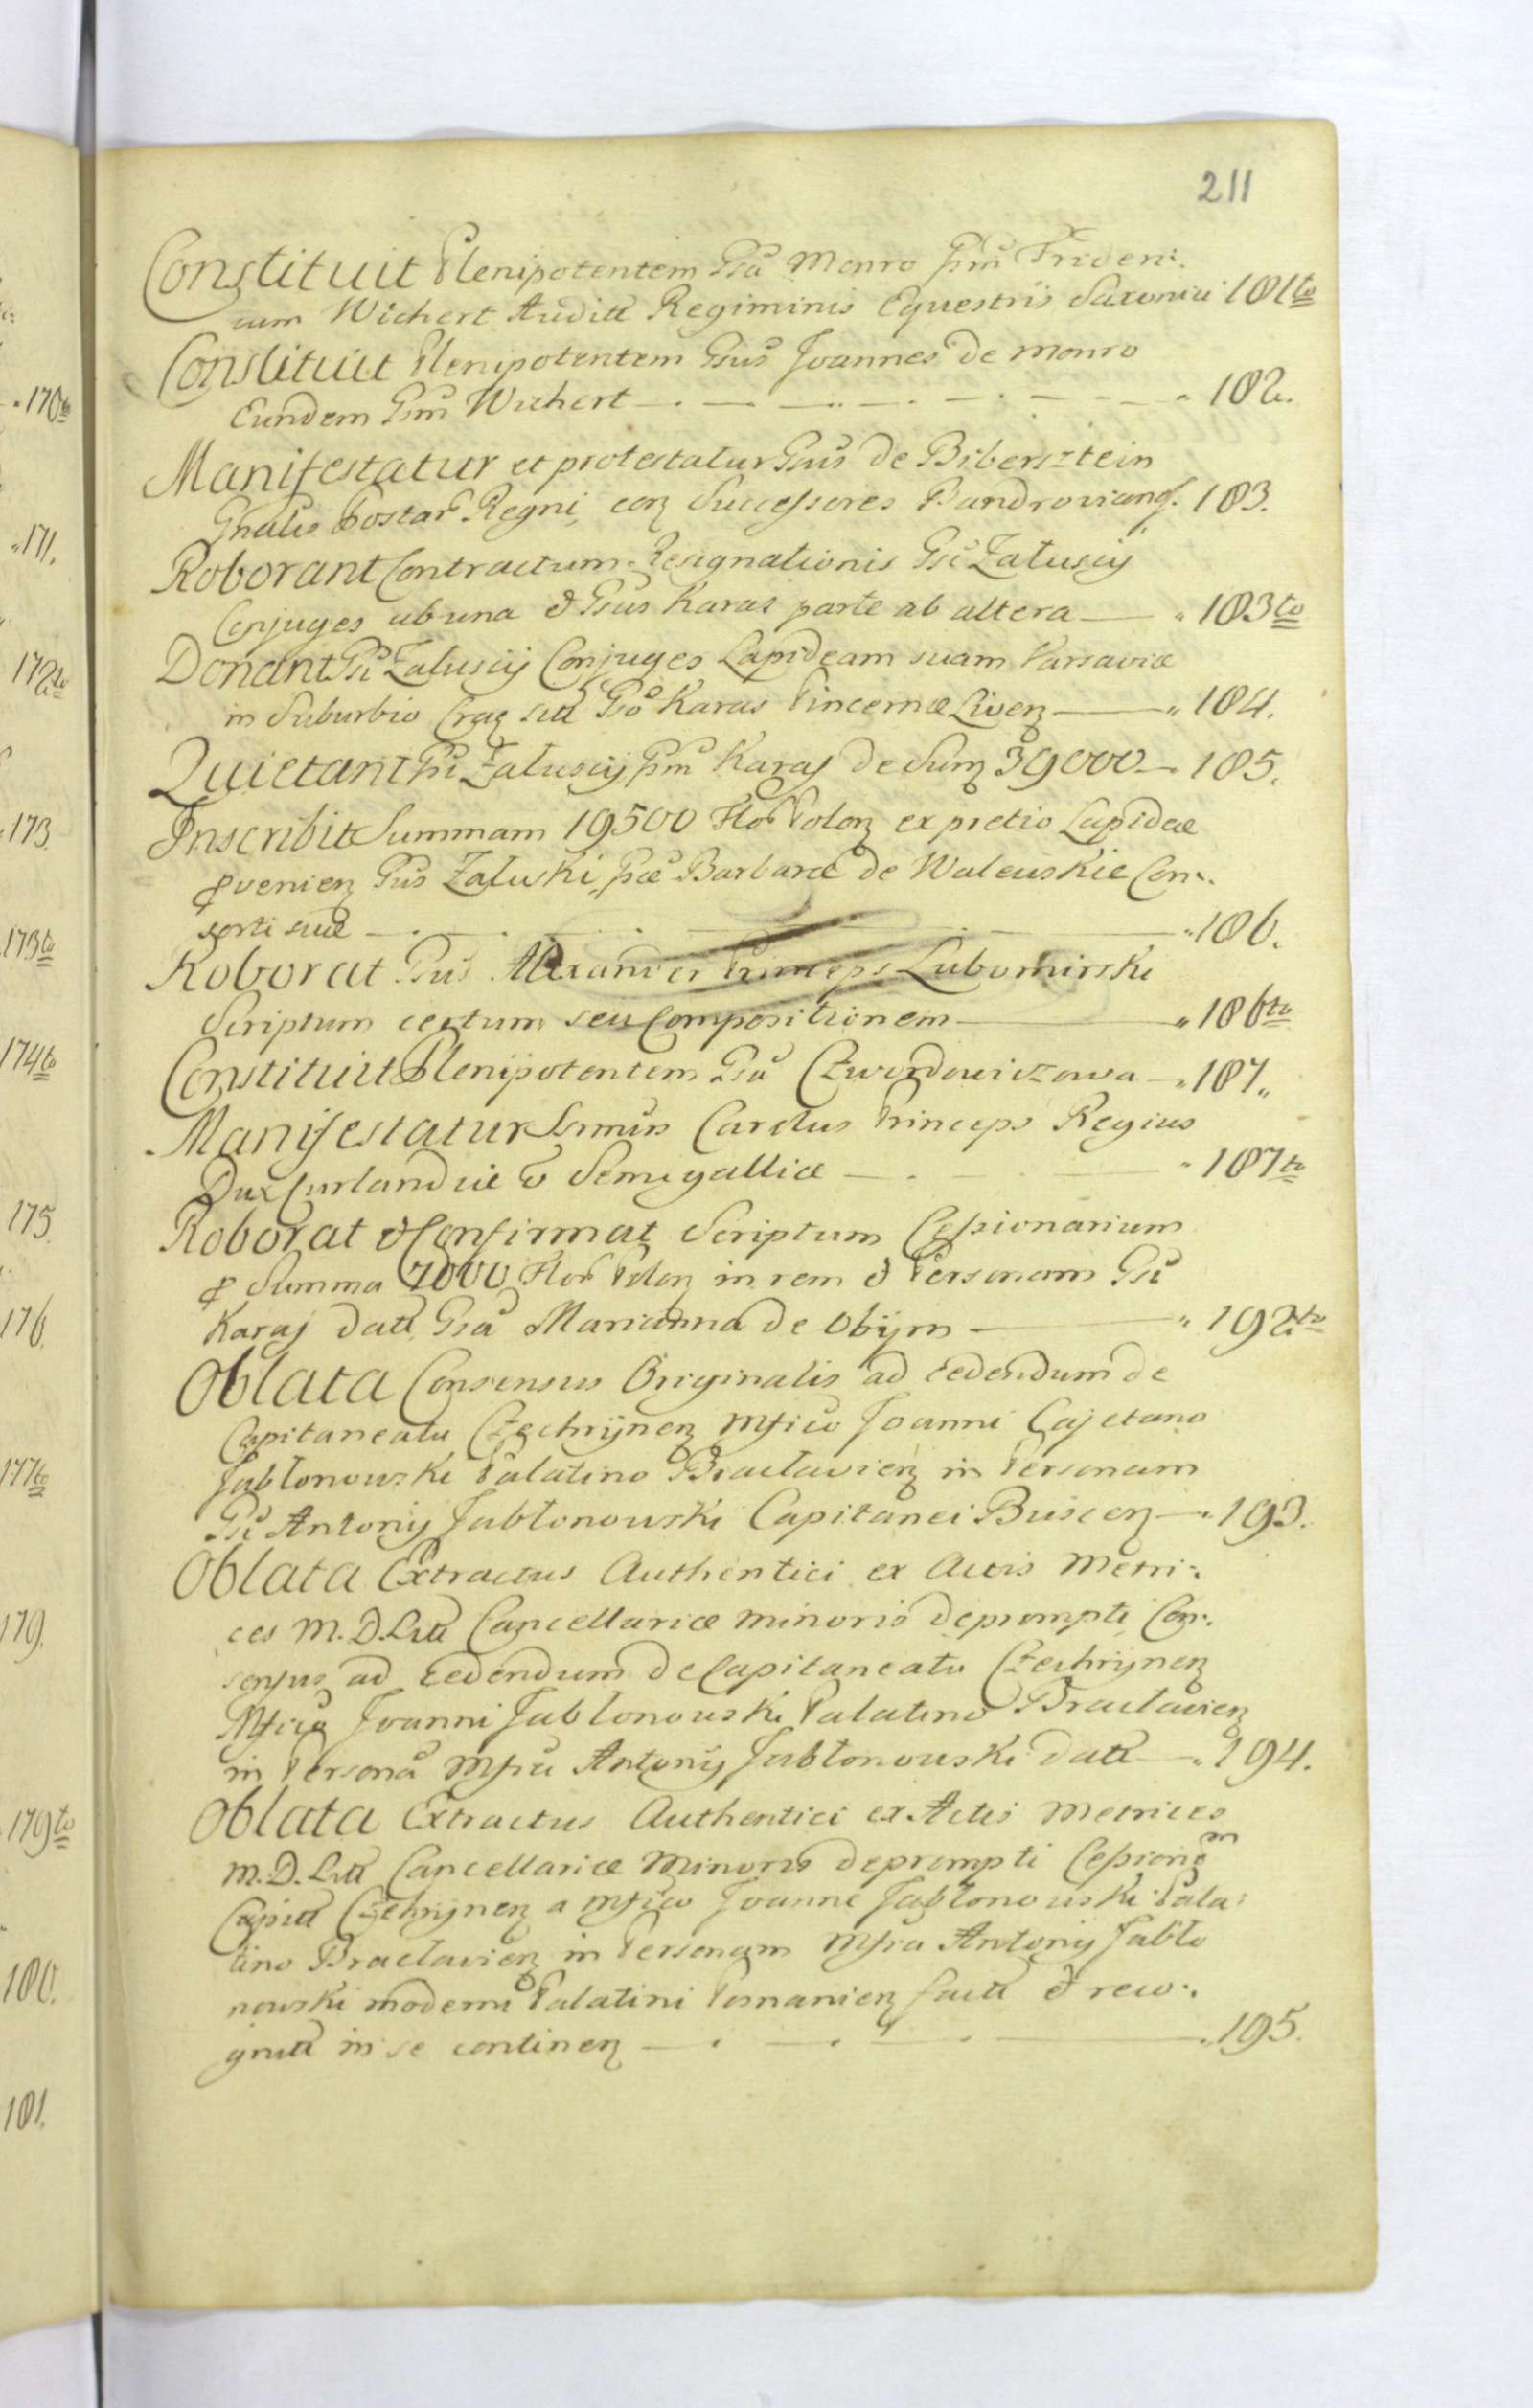 211
Constituit Plenipotentem Gsa Monro Gsm Frideri:
cum Wichert Auditt Regiminis Equestris Saxonici 181to
Constituit Plenipotentem Gsus Joannes de Monro
Eundem Gsm Wichert 182.
Manifestatur et protestatur Gsus de Bibersztein
Gnalis Postar Regni, con Successores Bandrovianos. 183.
Roborant Contractum Resignationis Gsi Załuscij
Conjuges ab una & Gsus Karas parte ab altera 183to
Donant Gsi Załuscij Conjuges Lapideam suam Varsaviæ
in Suburbio Crac sitt Gso Karas Pincernæ Liven 184.
Quietant Gsi Załuscij Gsm Karaś de Sum 39000 185.
Inscribit Summam 19500 Flor Polon ex pretio Lapideæ
pvenien Gsus Załuski, Gsæ Barbaræ de Walewskie Con:
sorti suæ 186.
Roborat Gsus Alexander Princeps Lubomirski
Scriptum certum seu Compositionem 186to
Constituit Plenipotentem Gsa Czwordowiczowa 187.
Manifestatur Srmus Carolus Princeps Regius
Dux Curlandiæ & Semigalliæ 187to
Roborat & Confirmat Scriptum Cessionarium
p Summa 7000 Flor Polon in rem & Personam Gsi
Karaś datt, Gsa Marianna de Obijm 192to
Oblata Consensus Originalis ad cedendum de
Capitaneatu Czechrijnen Mfico Joanni Cajetano
Jabłonowski Palatino Bracłavien in Personam
Gsi Antonij Jabłonowski Capitanei Buscen 193.
Oblata Extractus Authentici ex Actis Metri:
ces M. D. Litt Cancellariæ minoris deprompti Con:
sensus ad cedendum de Capitaneatu Czechrijnen
Mfico Joanni Jabłonowski Palatino Bracłavien
in Personã Mfici Antonij Jabłonowski datt 194.
Oblata Extractus Authentici ex Actis Metrices
M. D. Litt Cancellariæ Minoris deprompti Cessionem
Capitt Czehrijnen a Mfico Joanne Jabłonowski Pala:
tino Bracłavien in Personam Mfici Antonij Jabło
nowski moderni Palatini Posnanien factt & reco:
gnitt in se continen 195.
170to
171.
172to
173.
173to
174to
175.
176.
177to
179.
179to
180.
181.